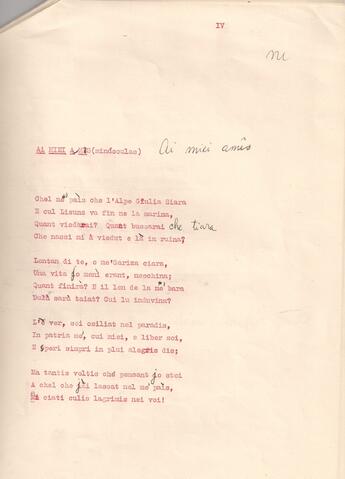 IV
AI MIEI AMIS (minúsculas) Ai miei amîs
Chel mê païs che l'Alpe Giulia Siara
E cul Lisuns va fin ne la marina,
Quant viodarai? Quant bussarai che tiara
Che nassi mi à viodut e là in ruina?
Lontan di te, o me'Gurizza ciara,
Una vita jo meni erant, meschina;
Quant finirà? E il len de la mê bara
Dulà sarà taiat? Cui lu induvina?
L'è ver, soi esiliat nel paradis,
In patria mê, cui miei, e liber soi,
E speri simpri in plui alegris dis;
Ma tantis voltis che pensant jo stoi
A chel che jài lassat nel mê païs,
Mi ciati culis lagrimis nei voi!